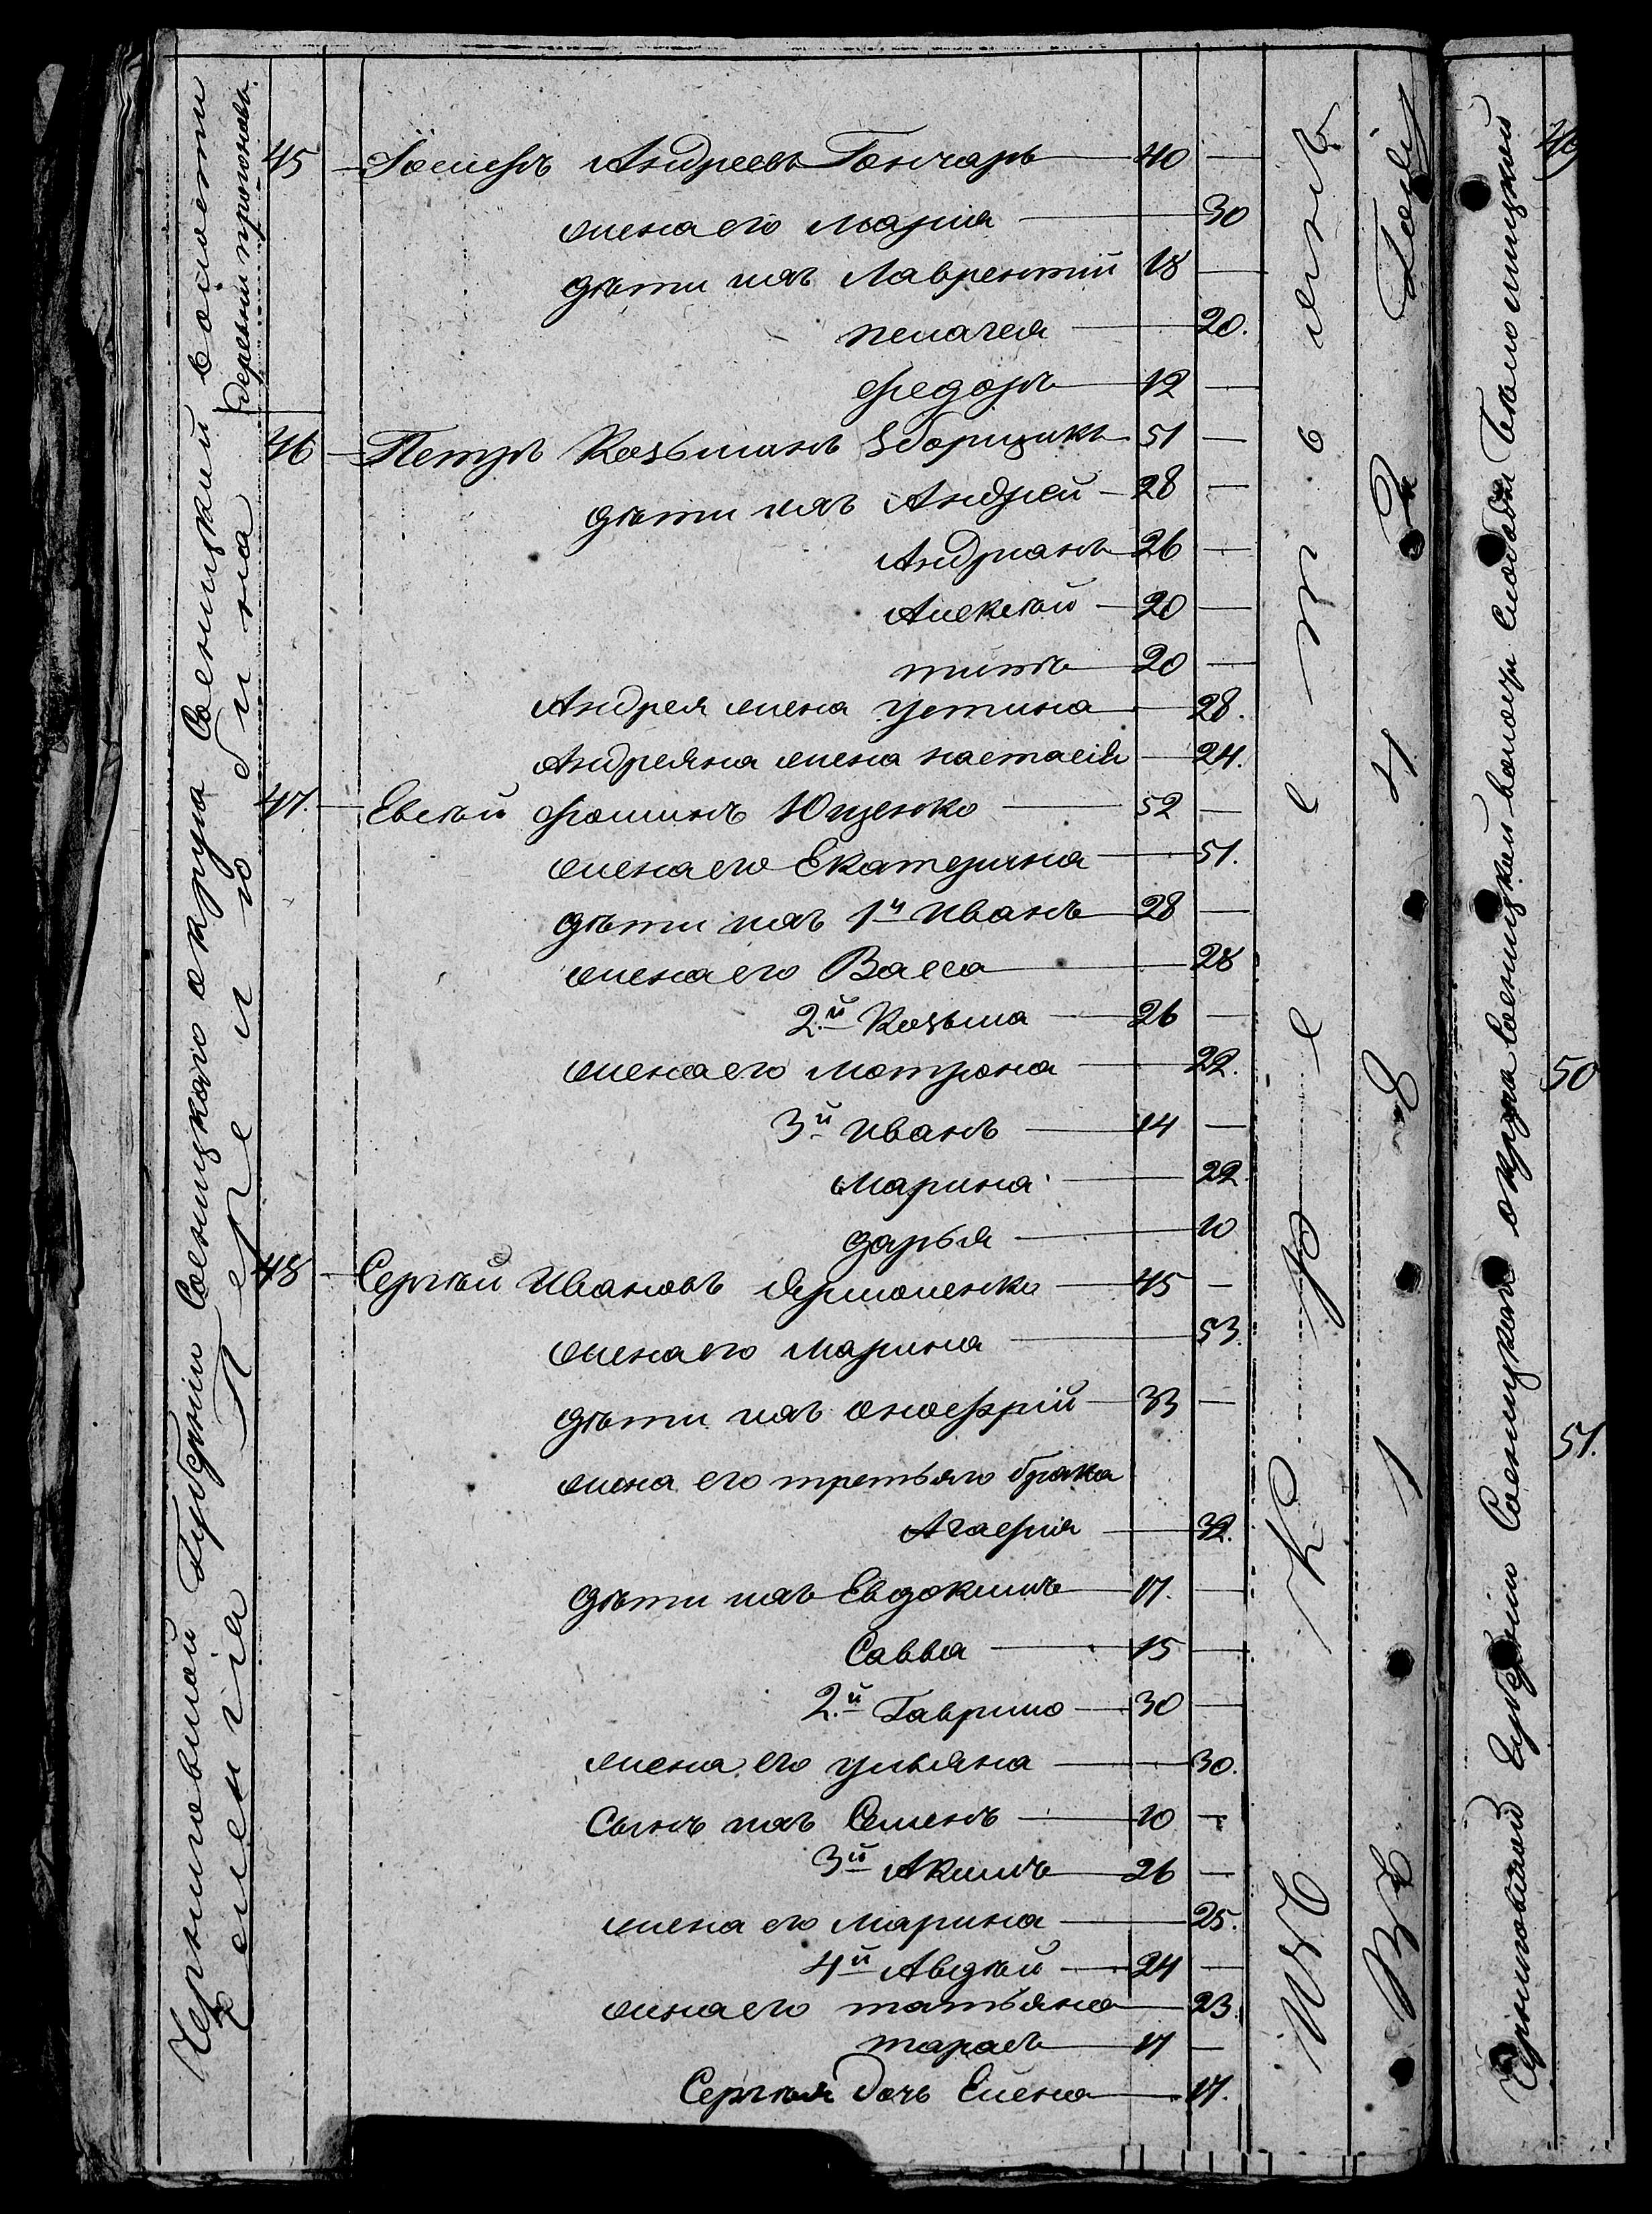 Черниговской Губерніи Сосницкаго округа Сосницкой волости
деревни пролоновъ
Селенія Перелюбина
45 Іосифъ Андреевъ Гончаръ 40 —
жена его марія 30
дѣти ихъ Лаврентій 18 —
пелагея 20.
федоръ 12 —
46 Петръ Козьминъ Зборщикъ 51 —
дѣти ихъ Андрей 28 —
Андріанъ 26 —
Алексѣй 20 —
титъ 20 —
Андрея жена устина 28.
Андреяна жена настасія 24.
47. Евсѣй фоминъ Ющенко 52 —
жена его Екатерина 51.
дѣти ихъ 1й Иванъ 28 —
жена его Васса 28
2.й Козьма 26 —
жена его мотрона 22.
3й Иванъ 14 —
Марина 22
дарья 10
48 Сергѣй Ивановъ Ярмоленко 45 —
жена его Марина 53.
дѣти ихъ онофрій 33 —
жена его третьяго брака
Агафия 32.
дѣти ихъ Евдокимъ 17. —
Савва 15 —
2.й Гаврило 30 —
жена его ульяна 30.
Сынъ ихъ Семенъ 10 —
3й Акимъ 26 —
жена его Марина 25.
4й Авдѣй 24 —
жена его татьяна 23.
тарасъ 11 —
Сергѣя дочь Елена 17.
1
Черниговской Губерніи Сосницкаго округа Сосницкой волости Слободы
49
50
51.